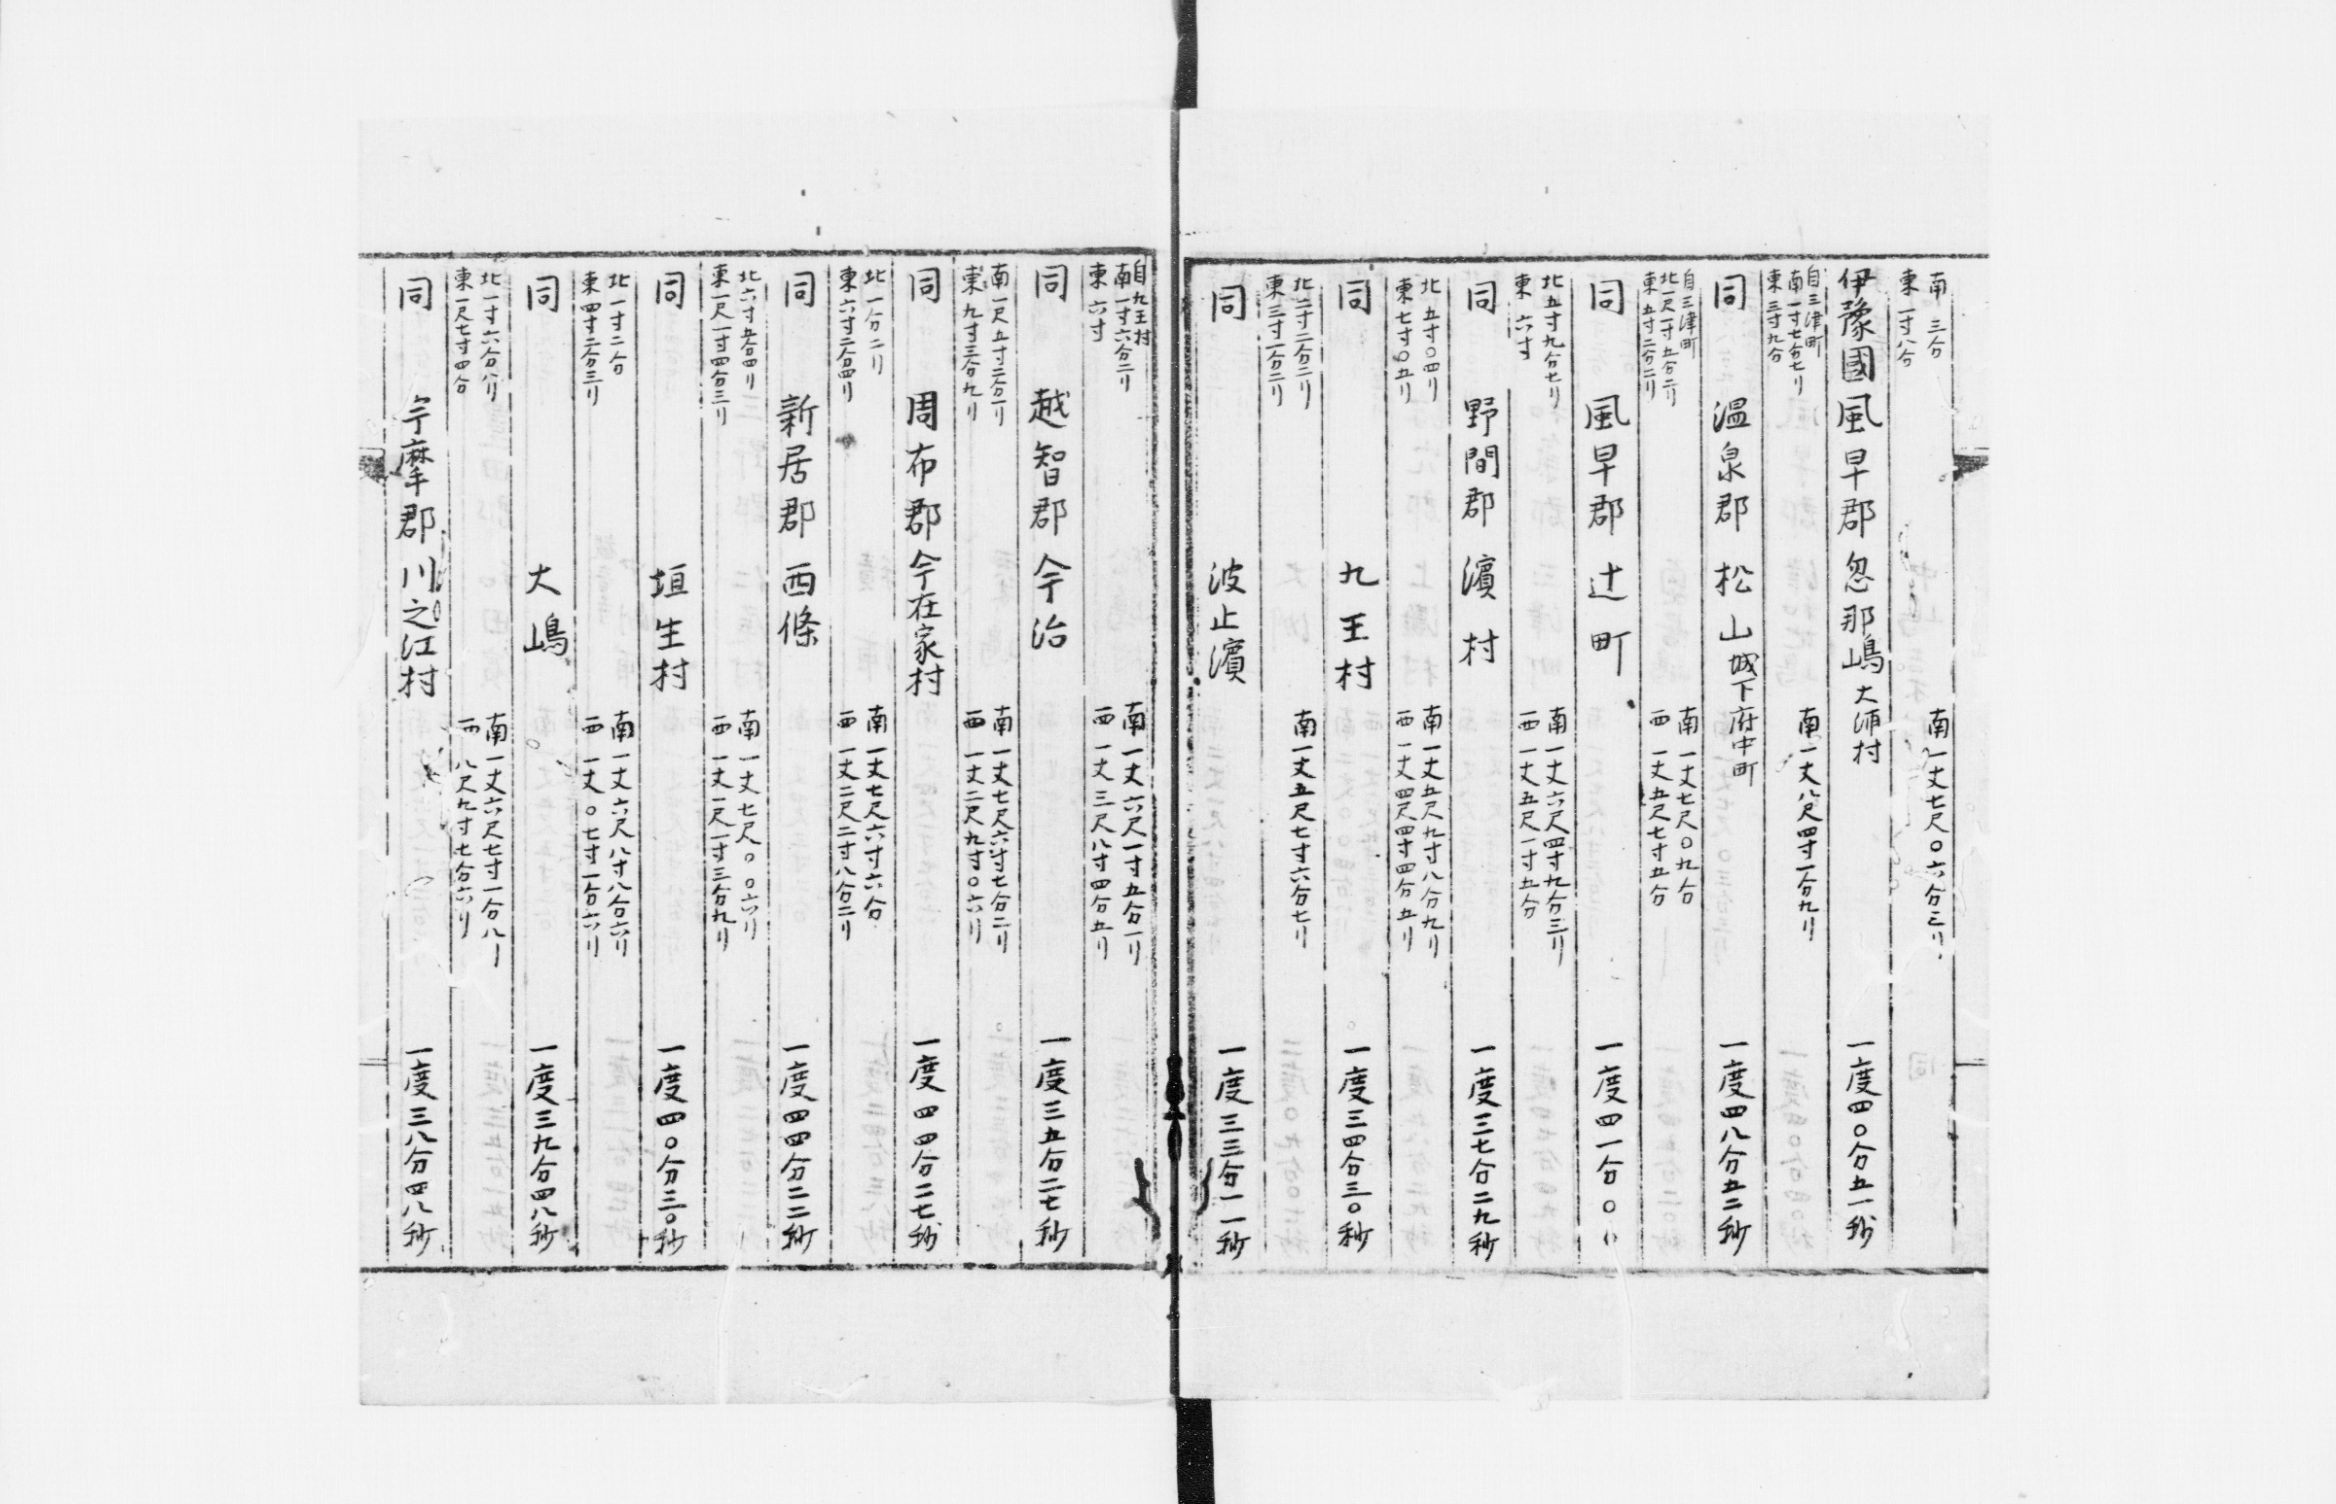 南 三分
東 一寸八分
南一丈七尺〇六分三リ
伊豫國風早郡忽那嶋大浦村 一度四〇分五一秒
自三津町
南一寸七分七リ
東三寸九分
南一丈八尺四寸一分九リ
同 温泉郡 松山城下府中町 一度四八分五二秒
自三津町
北一尺一寸五分二リ
東五寸二分二リ
南一丈七尺〇九分
西一丈五尺七寸五分
同 風早郡 辻町 一度四一分〇〇
北五寸九分七リ
東六寸
南一丈六尺四寸九分三リ
西一丈五尺一寸五分
同 野間郡 濱村 一度三七分二九秒
北五寸〇四リ
東七寸〇五リ
南一丈五尺九寸八分九リ
西一丈四尺四寸四分五リ
同 九王村 一度三四分三〇秒
北二寸二分二リ
東三寸一分二リ
南一丈五尺七寸六分七リ
同 波止濱 一度三三分一一秒
自九王村
南一寸六分二リ
東六寸
南一丈六尺一寸五分一リ
西一丈三尺八寸四分五リ
同 越智郡 今治 一度三五分二七秒
南一尺五寸二分一リ
東九寸三分九リ
南一丈七尺六寸七分二リ
西一丈二尺九寸〇六リ
同 周布郡 今在家村 一度四四分二七秒
北一分二リ
東六寸二分四リ
南一丈七尺六寸六分
西一丈二尺二寸八分二リ
同 新居郡 西條 一度四四分二二秒
北六寸五分四リ
東一尺一寸四分三リ
南一丈七尺〇〇六リ
西一丈一尺一寸三分九リ
同 垣生村 一度四〇分三〇秒
北一寸二分
東四寸二分三リ
南一丈六尺八寸八分六リ
西一丈〇七寸一分六リ
同 大嶋 一度三九分四八秒
北一寸六分八リ
東一尺七寸四分
南一丈六尺七寸一分八リ
西八尺九寸七分六リ
同 宇摩郡 川之江村 一度三八分四八秒